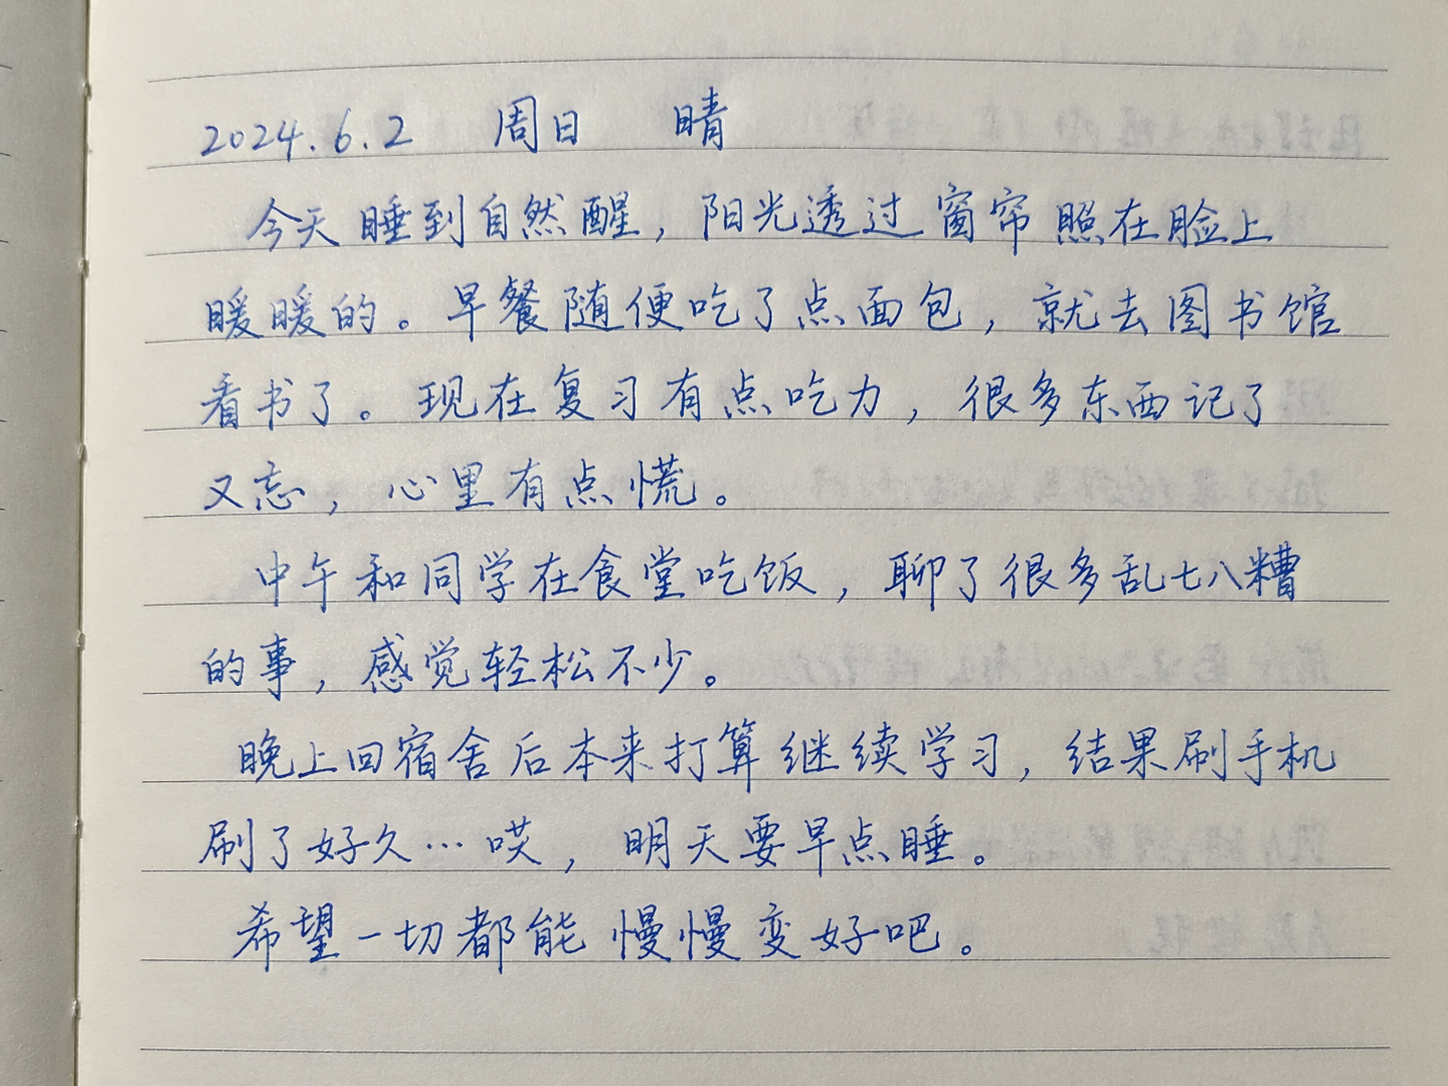 2024.6.2 周日 晴
今天睡到自然醒，阳光透过窗帘照在脸上
暖暖的。早餐随便吃了点面包，就去图书馆
看书了。现在复习有点吃力，很多东西记了
又忘，心里有点慌。
中午和同学在食堂吃饭，聊了很多乱七八糟
的事，感觉轻松不少。
晚上回宿舍后本来打算继续学习，结果刷手机
刷了好久…哎，明天要早点睡。
希望一切都能慢慢变好吧。